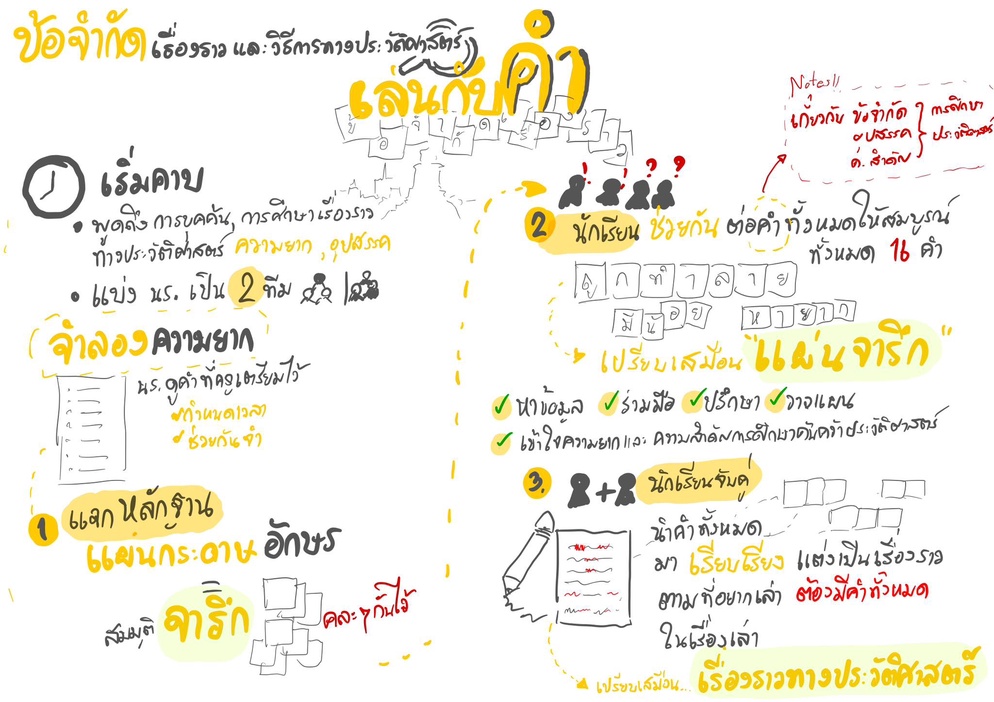 ข้อจำกัด เรื่องราว และ วิธีการทางประวัติศาสตร์
เล่นกับคำ
Notes!!
เกี่ยวกับ ข้อจำกัด
อุปสรรค
ค. สำคัญ
การศึกษา
ประวัติศาสตร์
เริ่มคาบ
• พูดถึง การขุดค้น, การศึกษาเรื่องราว
ทางประวัติศาสตร์ ความยาก, อุปสรรค
• แบ่ง นร. เป็น 2 ทีม
จำลองความยาก
นร. ดูคำที่ครูเตรียมไว้
กำหนดเวลา
ช่วยกันจำ
1 แจก หลักฐาน
แผ่นกระดาษ อักษร
สมมุติ จารึก
คละๆกันไว้
! ! ? ?
2 นักเรียน ช่วยกัน ต่อคำทั้งหมดให้สมบูรณ์
ทั้งหมด 16 คำ
ถูกทำลาย
มีน้อย หายาก
เปรียบเสมือน "แผ่นจารึก"
✓ หาข้อมูล ✓ ร่วมมือ ✓ ปรึกษา ✓ วางแผน
✓ เข้าใจความยากและ ความสำคัญการศึกษาค้นคว้าประวัติศาสตร์
3. + นักเรียนจับคู่
นำคำทั้งหมด
มา เรียบเรียง แต่งเป็นเรื่องราว
ตามที่อยากเล่า ต้องมีคำทั้งหมด
ในเรื่องเล่า
เปรียบเสมือน... เรื่องราวทางประวัติศาสตร์